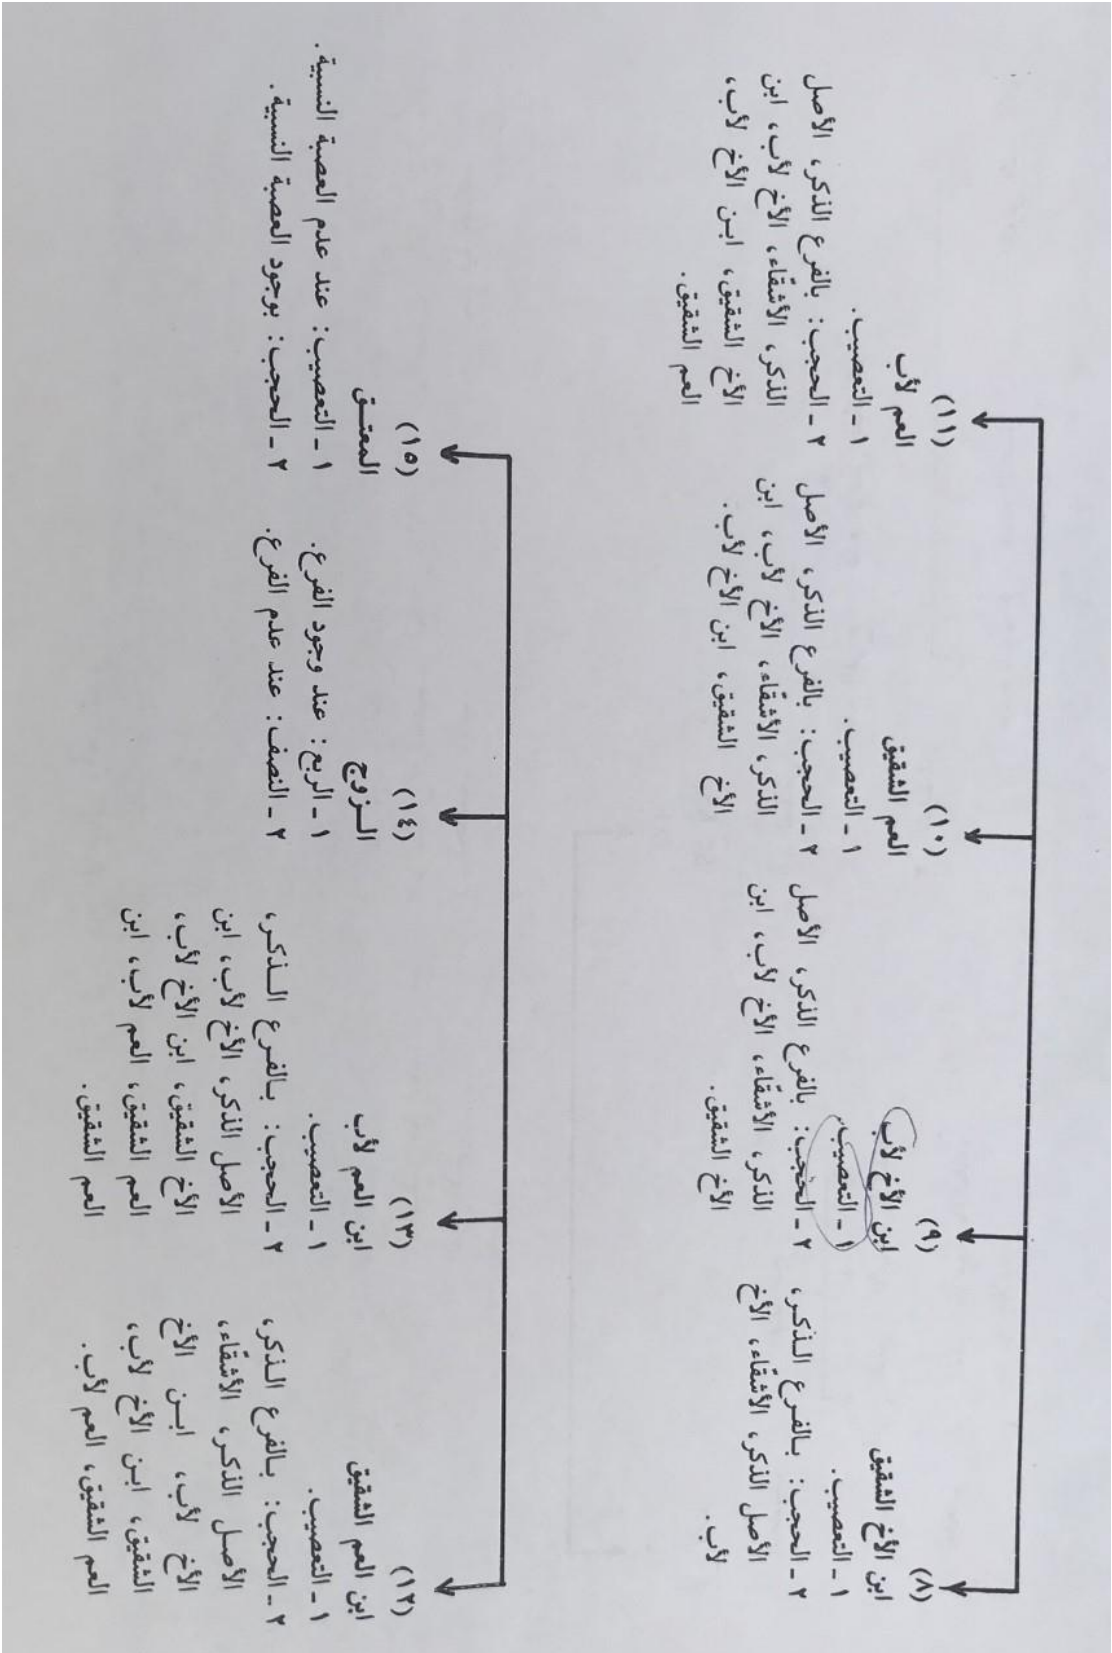 (٨)
ابن الأخ الشقيق
١ ـ التعصيب.
٢ ـ الحجب: بالفرع الذكر،
الأصل الذكر، الأشقاء، الأخ
لأب.
(٩)
ابن الأخ لأب
١ ـ التعصيب.
٢ ـ الحجب: بالفرع الذكر، الأصل
الذكر، الأشقاء، الأخ لأب، ابن
الأخ الشقيق.
(١٠)
العم الشقيق
١ ـ التعصيب.
٢ ـ الحجب: بالفرع الذكر، الأصل
الذكر، الأشقاء، الأخ لأب، ابن
الأخ الشقيق، ابن الأخ لأب.
(١١)
العم لأب
١ ـ التعصيب.
٢ ـ الحجب: بالفرع الذكر، الأصل
الذكر، الأشقاء، الأخ لأب، ابن
الأخ الشقيق، ابن الأخ لأب،
العم الشقيق.
(١٢)
ابن العم الشقيق
١ ـ التعصيب.
٢ ـ الحجب: بالفرع الذكر،
الأصل الذكر، الأشقاء،
الأخ لأب، ابن الأخ
الشقيق، ابن الأخ لأب،
العم الشقيق، العم لأب.
(١٣)
ابن العم لأب
١ ـ التعصيب.
٢ ـ الحجب: بالفرع الذكر،
الأصل الذكر، الأخ لأب، ابن
الأخ الشقيق، ابن الأخ لأب،
العم الشقيق، العم لأب، ابن
العم الشقيق.
(١٤)
الزوج
١ ـ الربع: عند وجود الفرع.
٢ ـ النصف: عند عدم الفرع.
(١٥)
المعتق
١ ـ التعصيب: عند عدم العصبة النسبية.
٢ ـ الحجب: بوجود العصبة النسبية.